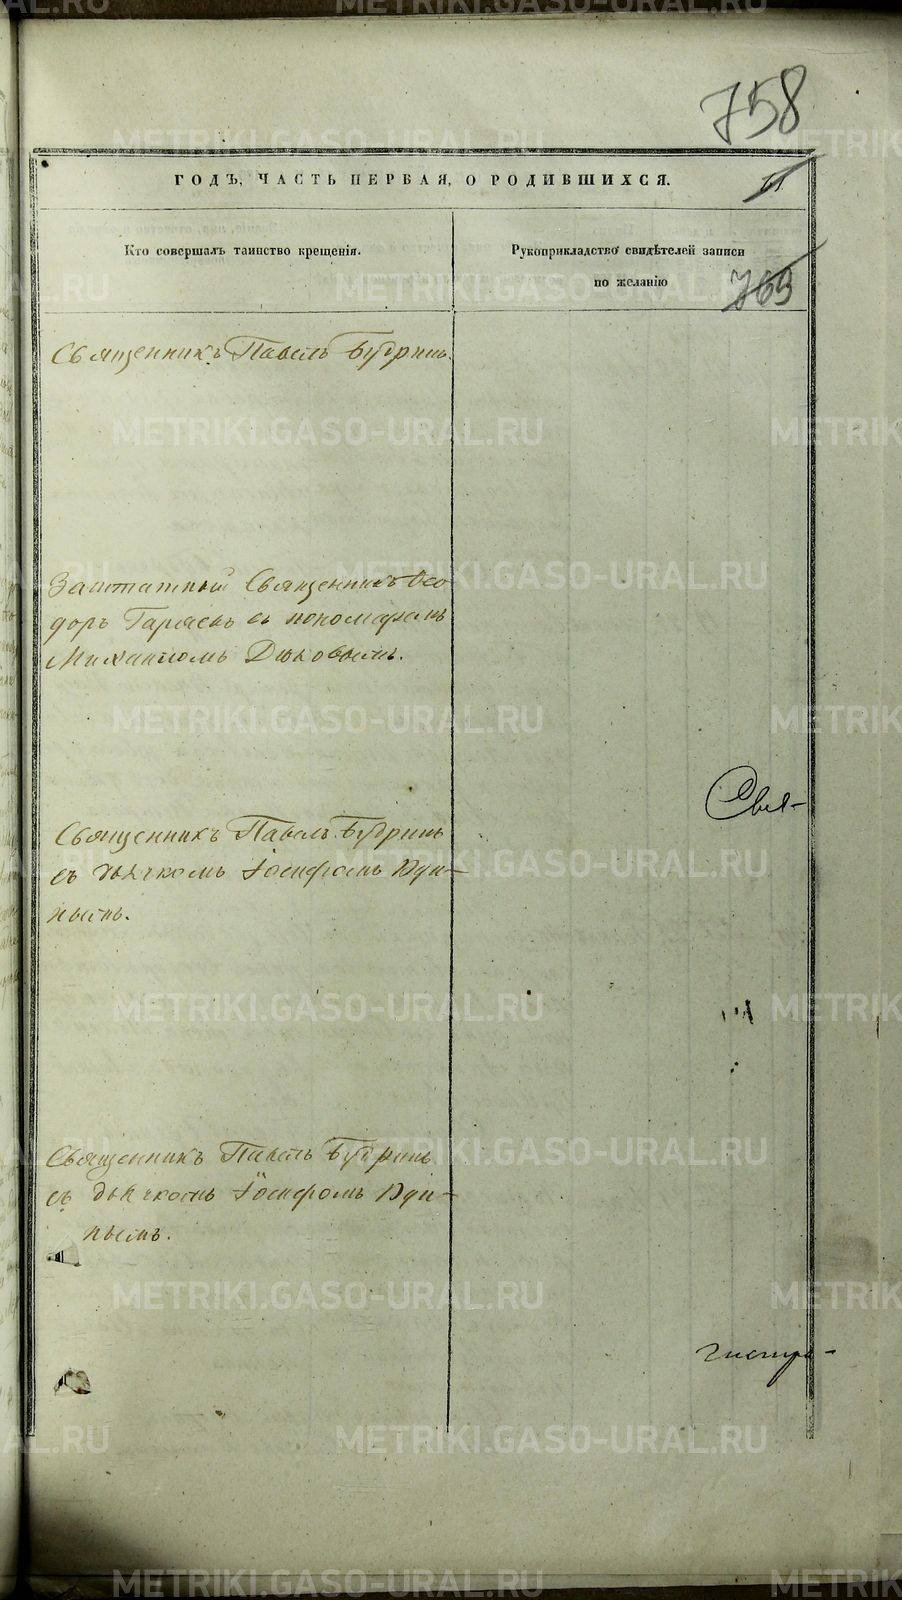 758
ГОДЪ, ЧАСТЬ ПЕРВАЯ, О РОДИВШИХСЯ.
61
Кто совершалъ таинство крещенія.
Рукоприкладство свидѣтелей записи
по желанію
769
Священникъ Павелъ Будринъ.
Заштатный Священникъ Ѳео-
доръ Гаряевъ съ пономаремъ
Михаиломъ Дюковымъ.
Свя-
Священникъ Павелъ Будринъ
съ дьячкомъ Іосифомъ
нымъ.
Священникъ Павелъ Будринъ
съ дьячкомъ Іосифомъ
нымъ.
гистра-
METRIKI.GASO-URAL.RU